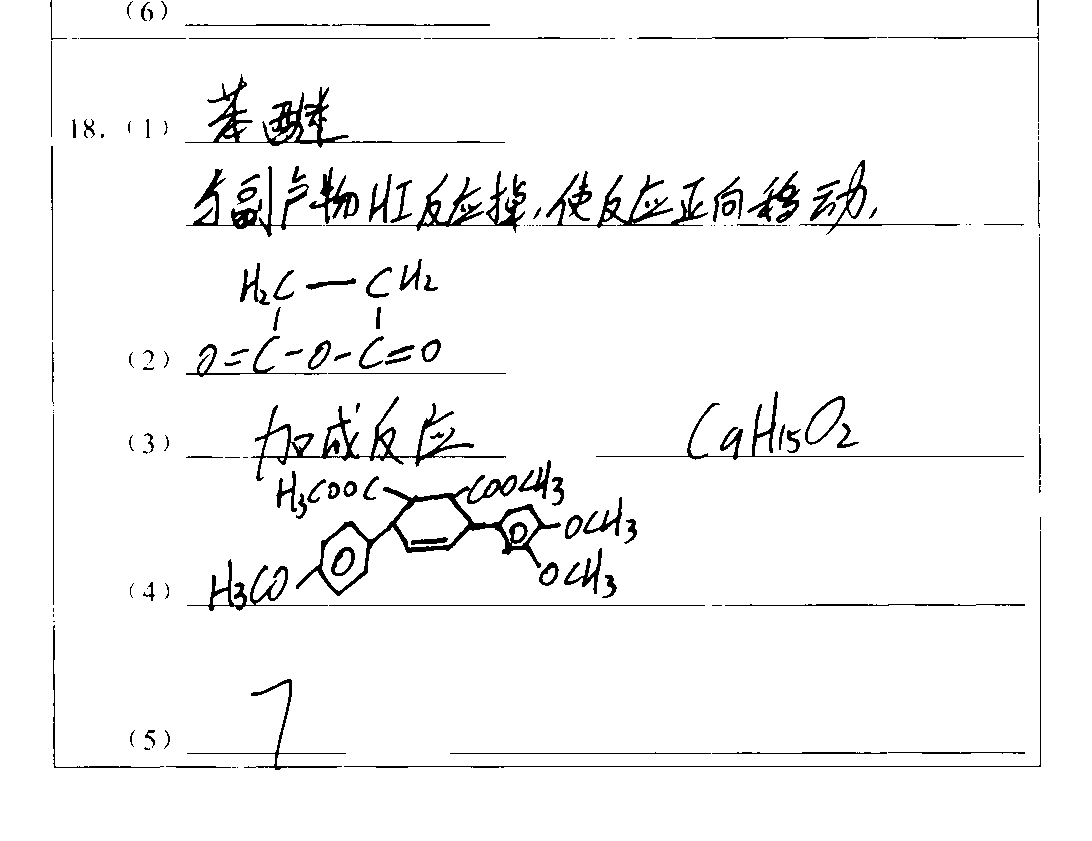 (6)
18. (1) 苯醚
与副产物HI反应掉,使反应正向移动,
H₂C—CH₂
(2) O=C-O-C=O
(3) 加成反应 C9H15O2
H3COOC COOCH3
OCH3
(4) H3CO OCH3
(5) 7